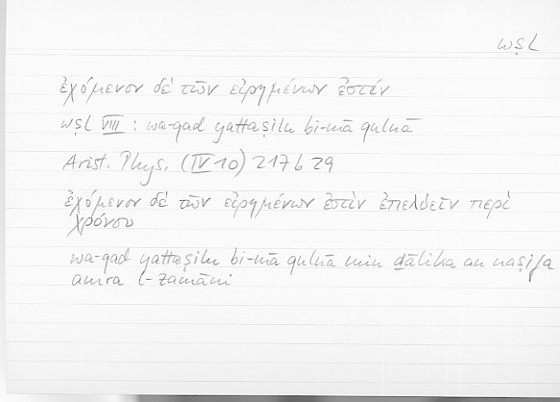 wṣl
ἐχόμενον δὲ τῶν εἰρημένων ἐστίν
wṣl VIII : wa-qad yattaṣilu bi-mā qulnā
Arist. Phys. (IV 10) 217 b 29
ἐχόμενον δὲ τῶν εἰρημένων ἐστὶν ἐπελθεῖν περὶ
χρόνου
wa-qad yattaṣilu bi-mā qulnā min ḏālika an naṣifa
amra l-zamāni